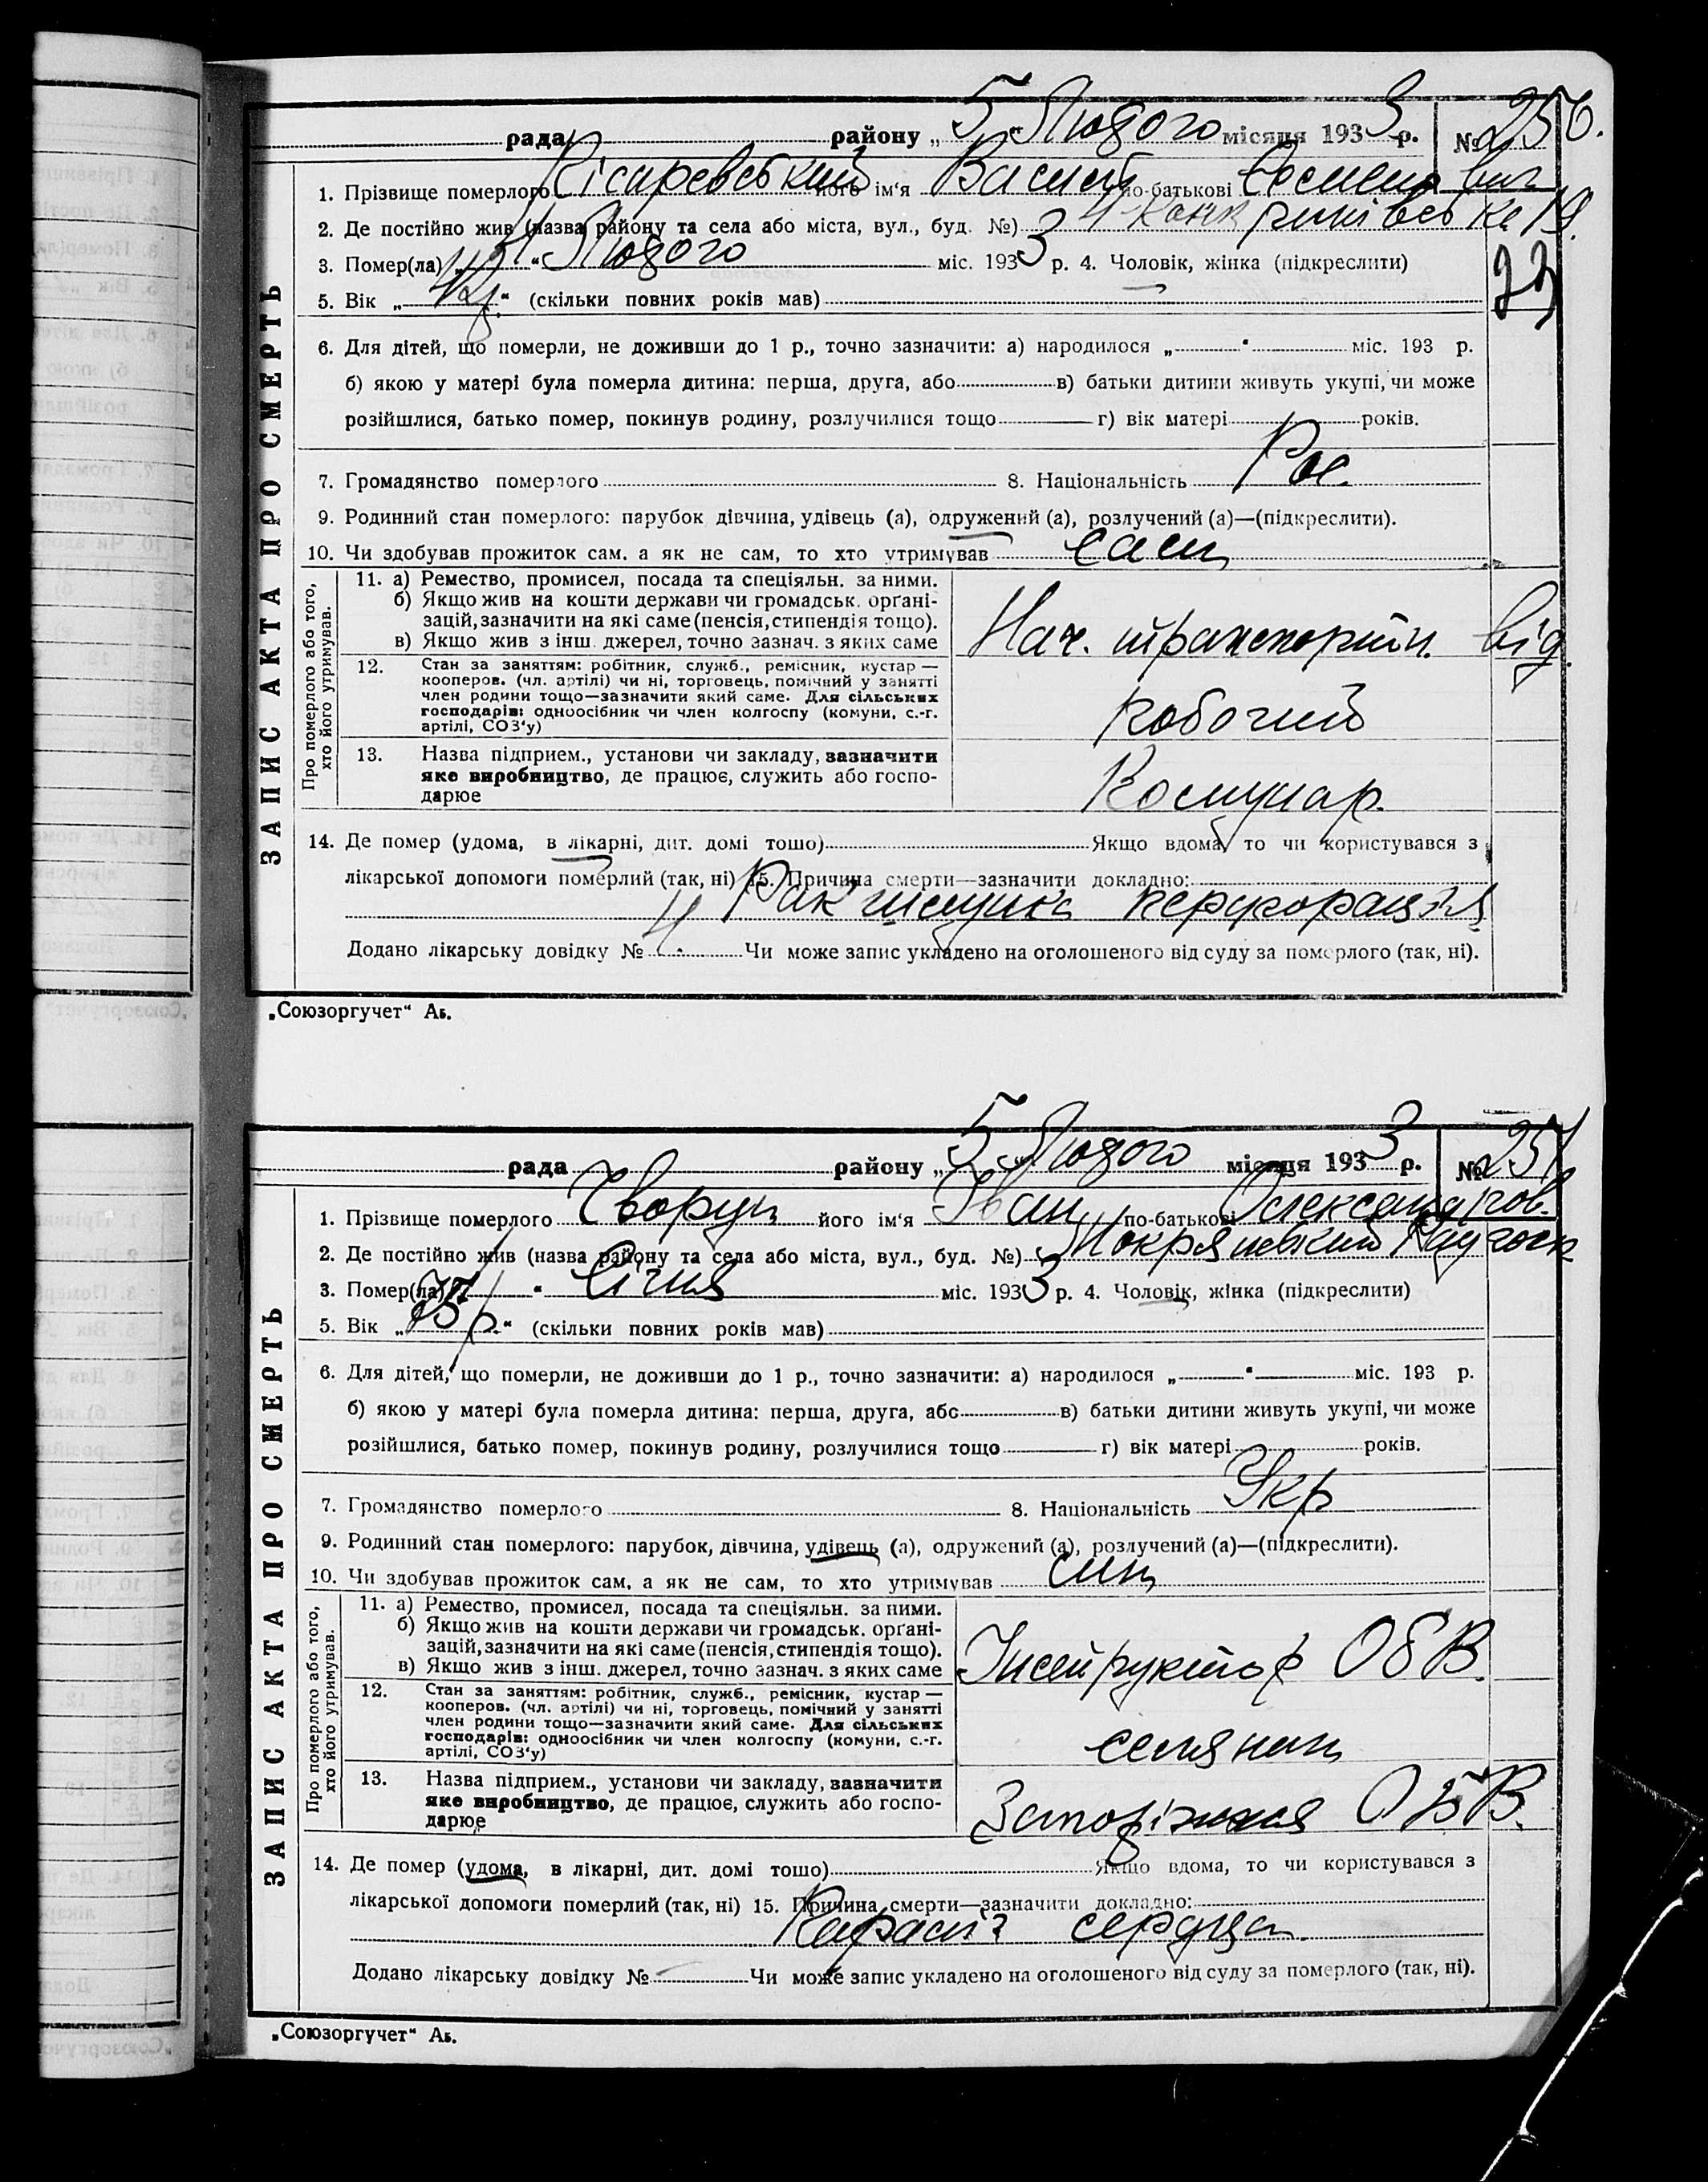 рада района „5“ Лютого місяця 1933 р. № 256.
1. Прізвище померлого його ім'я Василь по-батькові
2. Де постійно жив (назва району та села або міста, вул., буд. №) 19.
3. Помер(ла) „4“ Лютого міс. 1933 р. 4. Чоловік, жінка (підкреслити)
5. Вік „ “ (скільки повних років мав)
6. Для дітей, що померли, не доживши до 1 р., точно зазначити: а) народилося „ “ міс. 193 р.
б) якою у матері була померла дитина: перша, друга, або в) батьки дитини живуть укупі, чи може
розійшлися, батько помер, покинув родину, розлучилися тощо г) вік матері років.
7. Громадянство померлого 8. Національність Рос.
9. Родинний стан померлого: парубок дівчина, удівець (а), одружений (а), розлучений (а)—(підкреслити).
10. Чи здобував прожиток сам, а як не сам, то хто утримував сам
ЗАПИС АКТА ПРО СМЕРТЬ
Про померлого або того, хто його утримував.
11. а) Ремество, промисел, посада та спеціяльн. за ними.
б) Якщо жив на кошти держави чи громадськ. орґані-
зацій, зазначити на які саме (пенсія, стипендія тощо).
в) Якщо жив з інш. джерел, точно зазнач. з яких саме
Нач. транспортн. від.
12. Стан за заняттям: робітник, служб., ремісник, кустар —
кооперов. (чл. артілі) чи ні, торговець, помічний у занятті
член родини тощо—зазначити який саме. Для сільських
господарів: одноосібник чи член колгоспу (комуни, с.-г.
артілі, СОЗ'у)
робочий
13. Назва підприєм., установи чи закладу, зазначити
яке виробництво, де працює, служить або госпо-
дарює
Комунар.
14. Де помер (удома, в лікарні, дит. домі тощо) Якщо вдома, то чи користувався з
лікарської допомоги померлий (так, ні) 15. Причина смерти—зазначити докладно:
Рак шлунка перфорація
Додано лікарську довідку № Чи може запис укладено на оголошеного від суду за померлого (так, ні).
„Союзоргучет“ Аб.
рада району „5“ Лютого місяця 1933 р. № 257
1. Прізвище померлого його ім'я Іван по-батькові Олександров.
2. Де постійно жив (назва району та села або міста, вул., буд. №) Мокрянський Радгосп
3. Помер(ла) „ “ Січня міс. 1933 р. 4. Чоловік, жінка (підкреслити)
5. Вік „75 р.“ (скільки повних років мав)
6. Для дітей, що померли, не доживши до 1 р., точно зазначити: а) народилося „ “ міс. 193 р.
б) якою у матері була померла дитина: перша, друга, або в) батьки дитини живуть укупі, чи може
розійшлися, батько помер, покинув родину, розлучилися тощо г) вік матері років.
7. Громадянство померлого 8. Національність Укр
9. Родинний стан померлого: парубок, дівчина, удівець (а), одружений (а), розлучений (а)—(підкреслити).
10. Чи здобував прожиток сам, а як не сам, то хто утримував син
ЗАПИС АКТА ПРО СМЕРТЬ
Про померлого або того, хто його утримував.
11. а) Ремество, промисел, посада та спеціяльн. за ними.
б) Якщо жив на кошти держави чи громадськ. орґані-
зацій, зазначити на які саме (пенсія, стипендія тощо).
в) Якщо жив з інш. джерел, точно зазнач. з яких саме
Інструктор ОБВ.
12. Стан за заняттям: робітник, служб., ремісник, кустар —
кооперов. (чл. артілі) чи ні, торговець, помічний у занятті
член родини тощо—зазначити який саме. Для сільських
господарів: одноосібник чи член колгоспу (комуни, с.-г.
артілі, СОЗ'у)
селянин
13. Назва підприєм., установи чи закладу, зазначити
яке виробництво, де працює, служить або госпо-
дарює
ОБВ.
14. Де помер (удома, в лікарні, дит. домі тощо) Якщо вдома, то чи користувався з
лікарської допомоги померлий (так, ні) 15. Причина смерти—зазначити докладно:
Параліч сердца.
Додано лікарську довідку № Чи може запис укладено на оголошеного від суду за померлого (так, ні).
„Союзоргучет“ Аб.